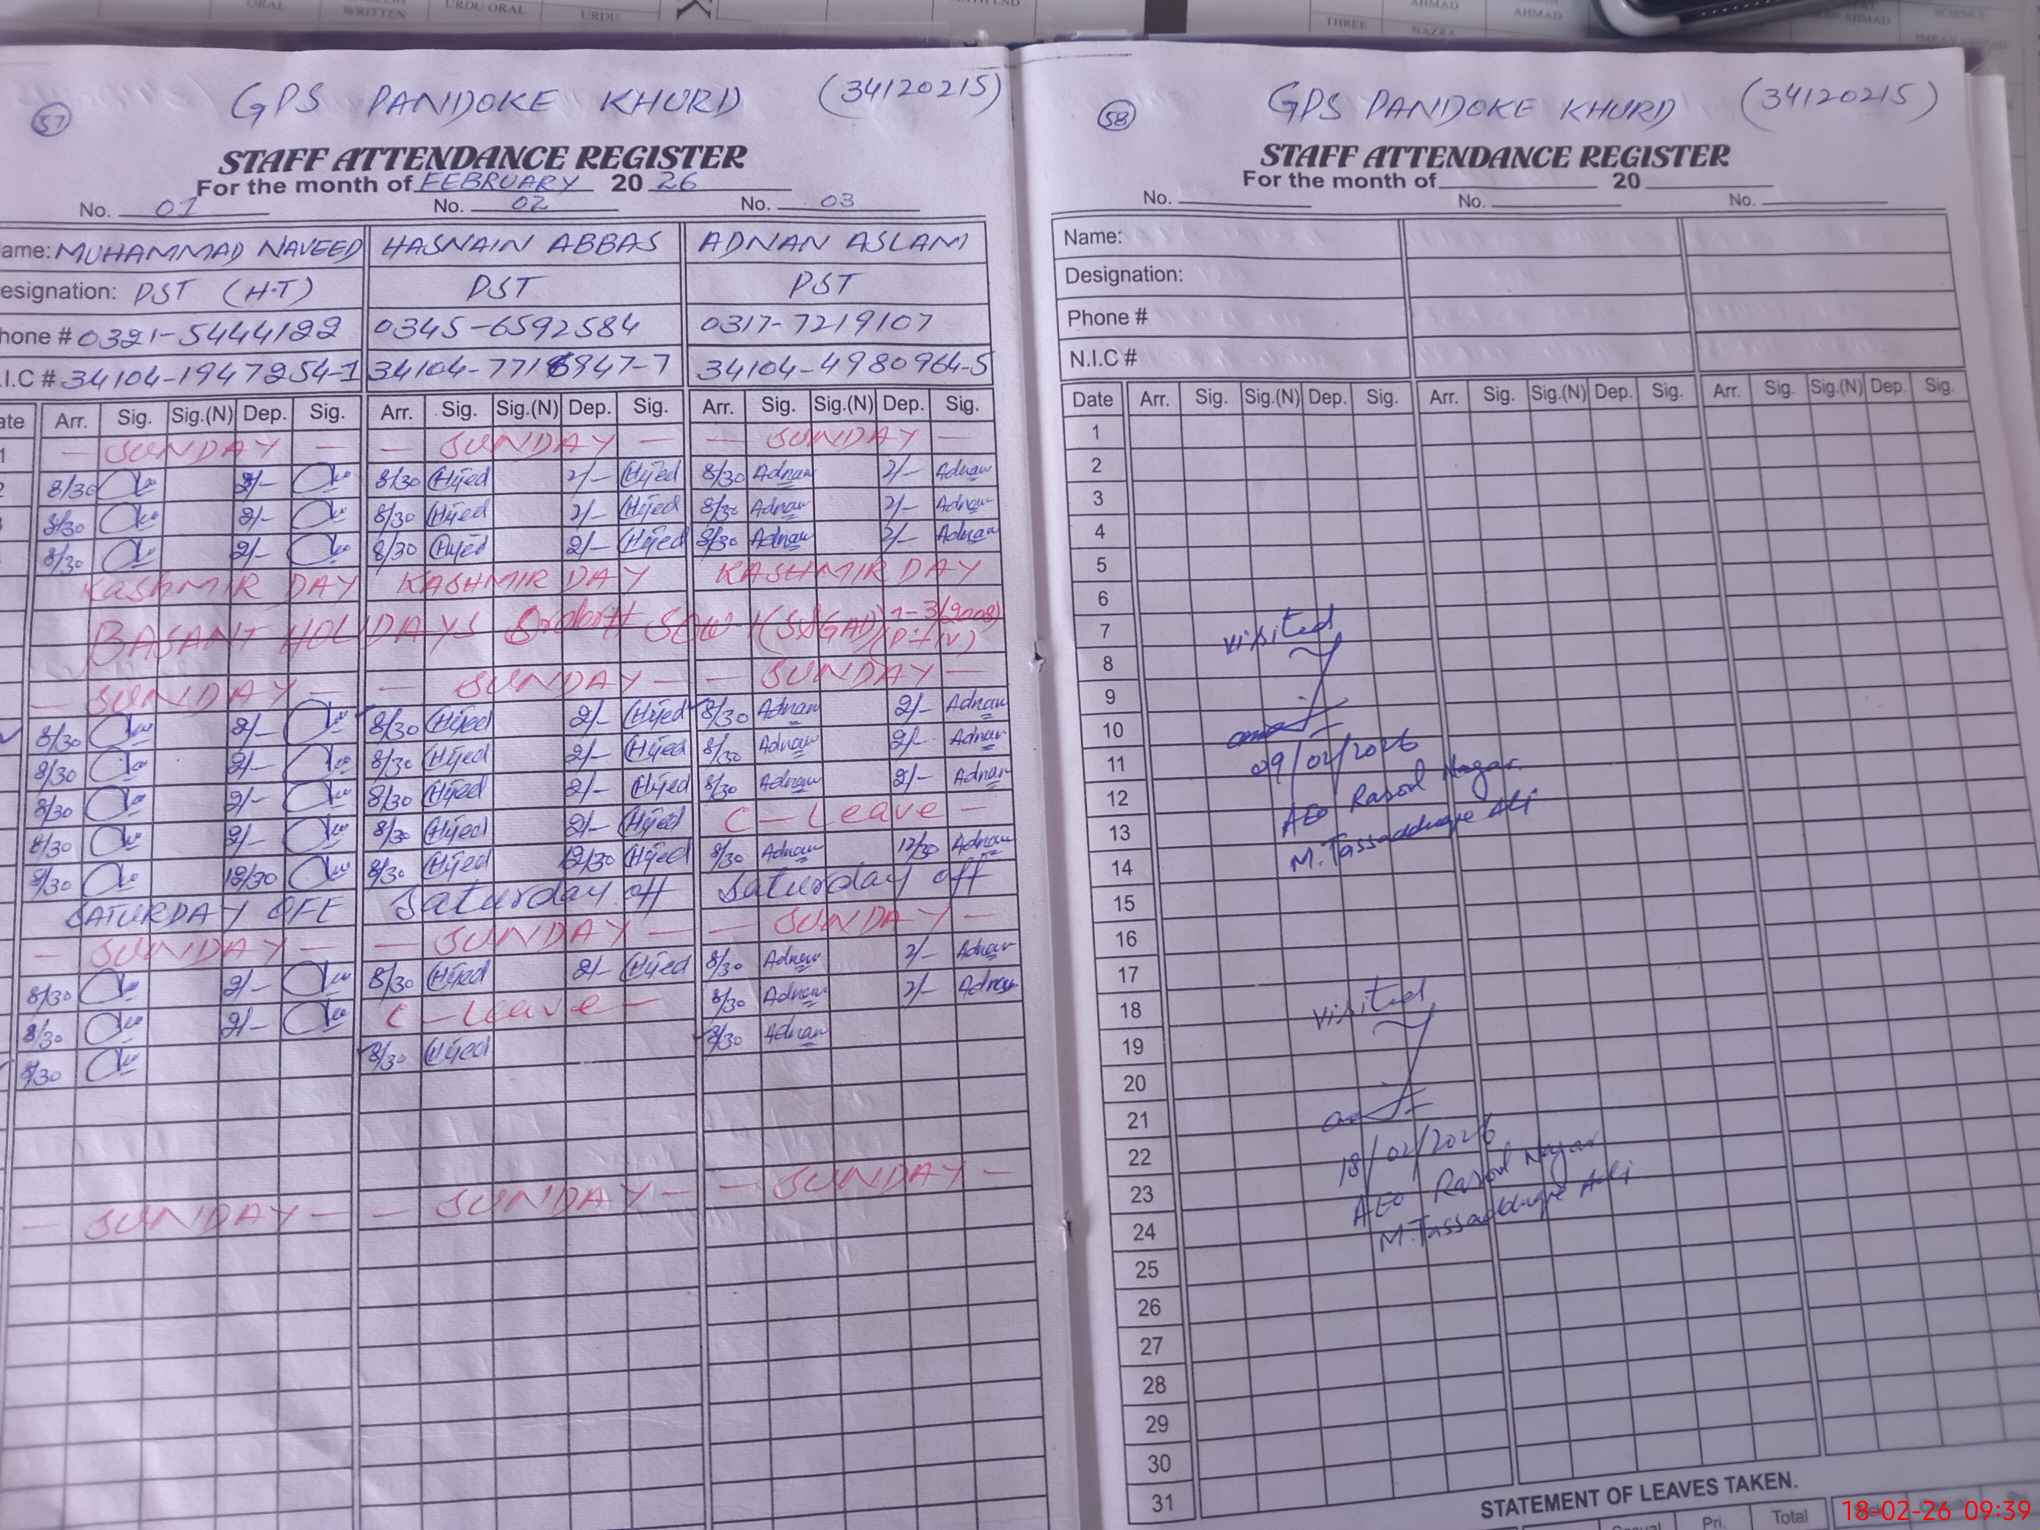 ORAL
WRITTEN
URDU ORAL
URDU
THREE
NAZRA
AHMAD
AHMAD
AHMAD
57
GPS PANDOKE KHURD (34120215)
STAFF ATTENDANCE REGISTER
For the month of FEBRUARY 20 26
No. 01 No. 02 No. 03
ame: MUHAMMAD NAVEED HASNAIN ABBAS ADNAN ASLAM
esignation: PST (H.T) PST PST
hone # 0321-5444122 0345-6592584 0317-7219107
.I.C # 34104-1947254-1 34104-7716947-7 34104-4980964-5
ate Arr. Sig. Sig.(N) Dep. Sig. Arr. Sig. Sig.(N) Dep. Sig. Arr. Sig. Sig.(N) Dep. Sig.
1 — SUNDAY — — SUNDAY — — SUNDAY —
2 8/30 2/- 8/30 Hjed 2/- Hjed 8/30 Adnan 2/- Adnan
8/30 2/- 8/30 Hjed 2/- Hjed 8/30 Adnan 2/- Adnan
8/30 2/- 8/30 Hjed 2/- Hjed 8/30 Adnan 2/- Adnan
KASHMIR DAY KASHMIR DAY KASHMIR DAY
BASANT HOLIDAYS
— SUNDAY — — SUNDAY — — SUNDAY —
8/30 2/- 8/30 Hjed 2/- Hjed 8/30 Adnan 2/- Adnan
8/30 2/- 8/30 Hjed 2/- Hjed 8/30 Adnan 2/- Adnan
8/30 2/- 8/30 Hjed 2/- Hjed 8/30 Adnan 2/- Adnan
8/30 2/- 8/30 Hjed 2/- Hjed C — Leave —
8/30 12/30 8/30 Hjed 12/30 Hjed 8/30 Adnan 12/30 Adnan
SATURDAY OFF Saturday off Saturday off
— SUNDAY — — SUNDAY — — SUNDAY —
8/30 2/- 8/30 Hjed 2/- Hjed 8/30 Adnan 2/- Adnan
8/30 2/- C — Leave — 8/30 Adnan 2/- Adnan
8/30 8/30 Hjed 8/30 Adnan
— SUNDAY — — SUNDAY — — SUNDAY —
58
GPS PANDOKE KHURD (34120215)
STAFF ATTENDANCE REGISTER
For the month of 20
No. No. No.
Name:
Designation:
Phone #
N.I.C #
Date Arr. Sig. Sig.(N) Dep. Sig. Arr. Sig. Sig.(N) Dep. Sig. Arr. Sig. Sig.(N) Dep. Sig.
1
2
3
4
5
6
7 visited
8
9
10
11 09/02/2026
12 AEO Rasool Nagar
13 M. Tassadduqe Ali
14
15
16
17
18 visited
19
20
21
22 18/02/2026
23 AEO Rasool Nagar
24 M. Tassadduqe Ali
25
26
27
28
29
30
31
STATEMENT OF LEAVES TAKEN.
Pri. Total
18-02-26 09:39